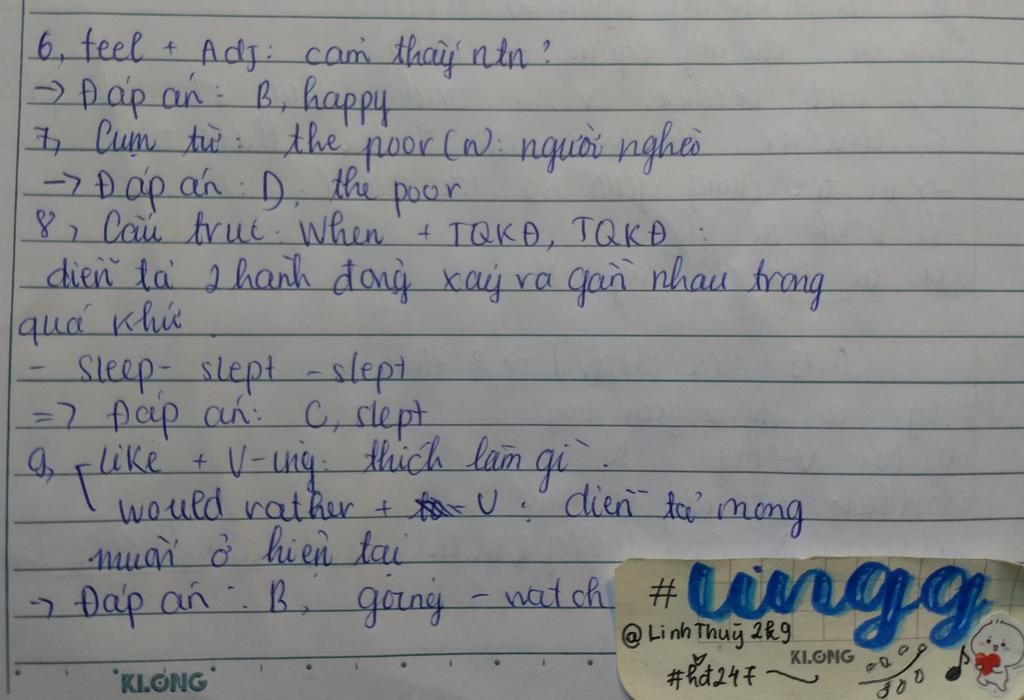 6, feel + Adj: cảm thấy ntn?
→ Đáp án: B, happy
7, Cụm từ: the poor (n): người nghèo
→ Đáp án: D, the poor
8, Cấu trúc: When + TQKĐ, TQKĐ:
diễn tả 2 hành động xảy ra gần nhau trong
quá khứ
- Sleep - slept - slept
=> Đáp án: C, slept
9, Like + V-ing: thích làm gì.
would rather + V: diễn tả mong
muốn ở hiện tại
→ Đáp án: B, going - watch
#lingg
@LinhThuỳ2k9
#hd247
KLONG
KLONG